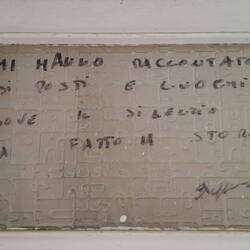 MI HANNO RACCONTATO
DI POSTI E LUOGHI
DOVE IL SILENZIO
HA FATTO LA STORIA